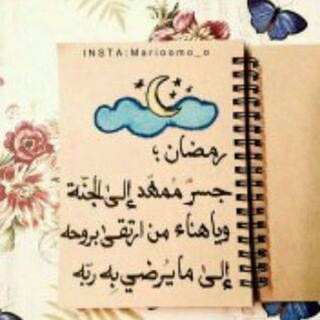 INSTA:Marioomo_o
رمضان ؛
جسرٌ مُمهّد إلى الجنّة
وياهناء من ارتقى بروحه
إلى ما يُرضي بِه ربّه